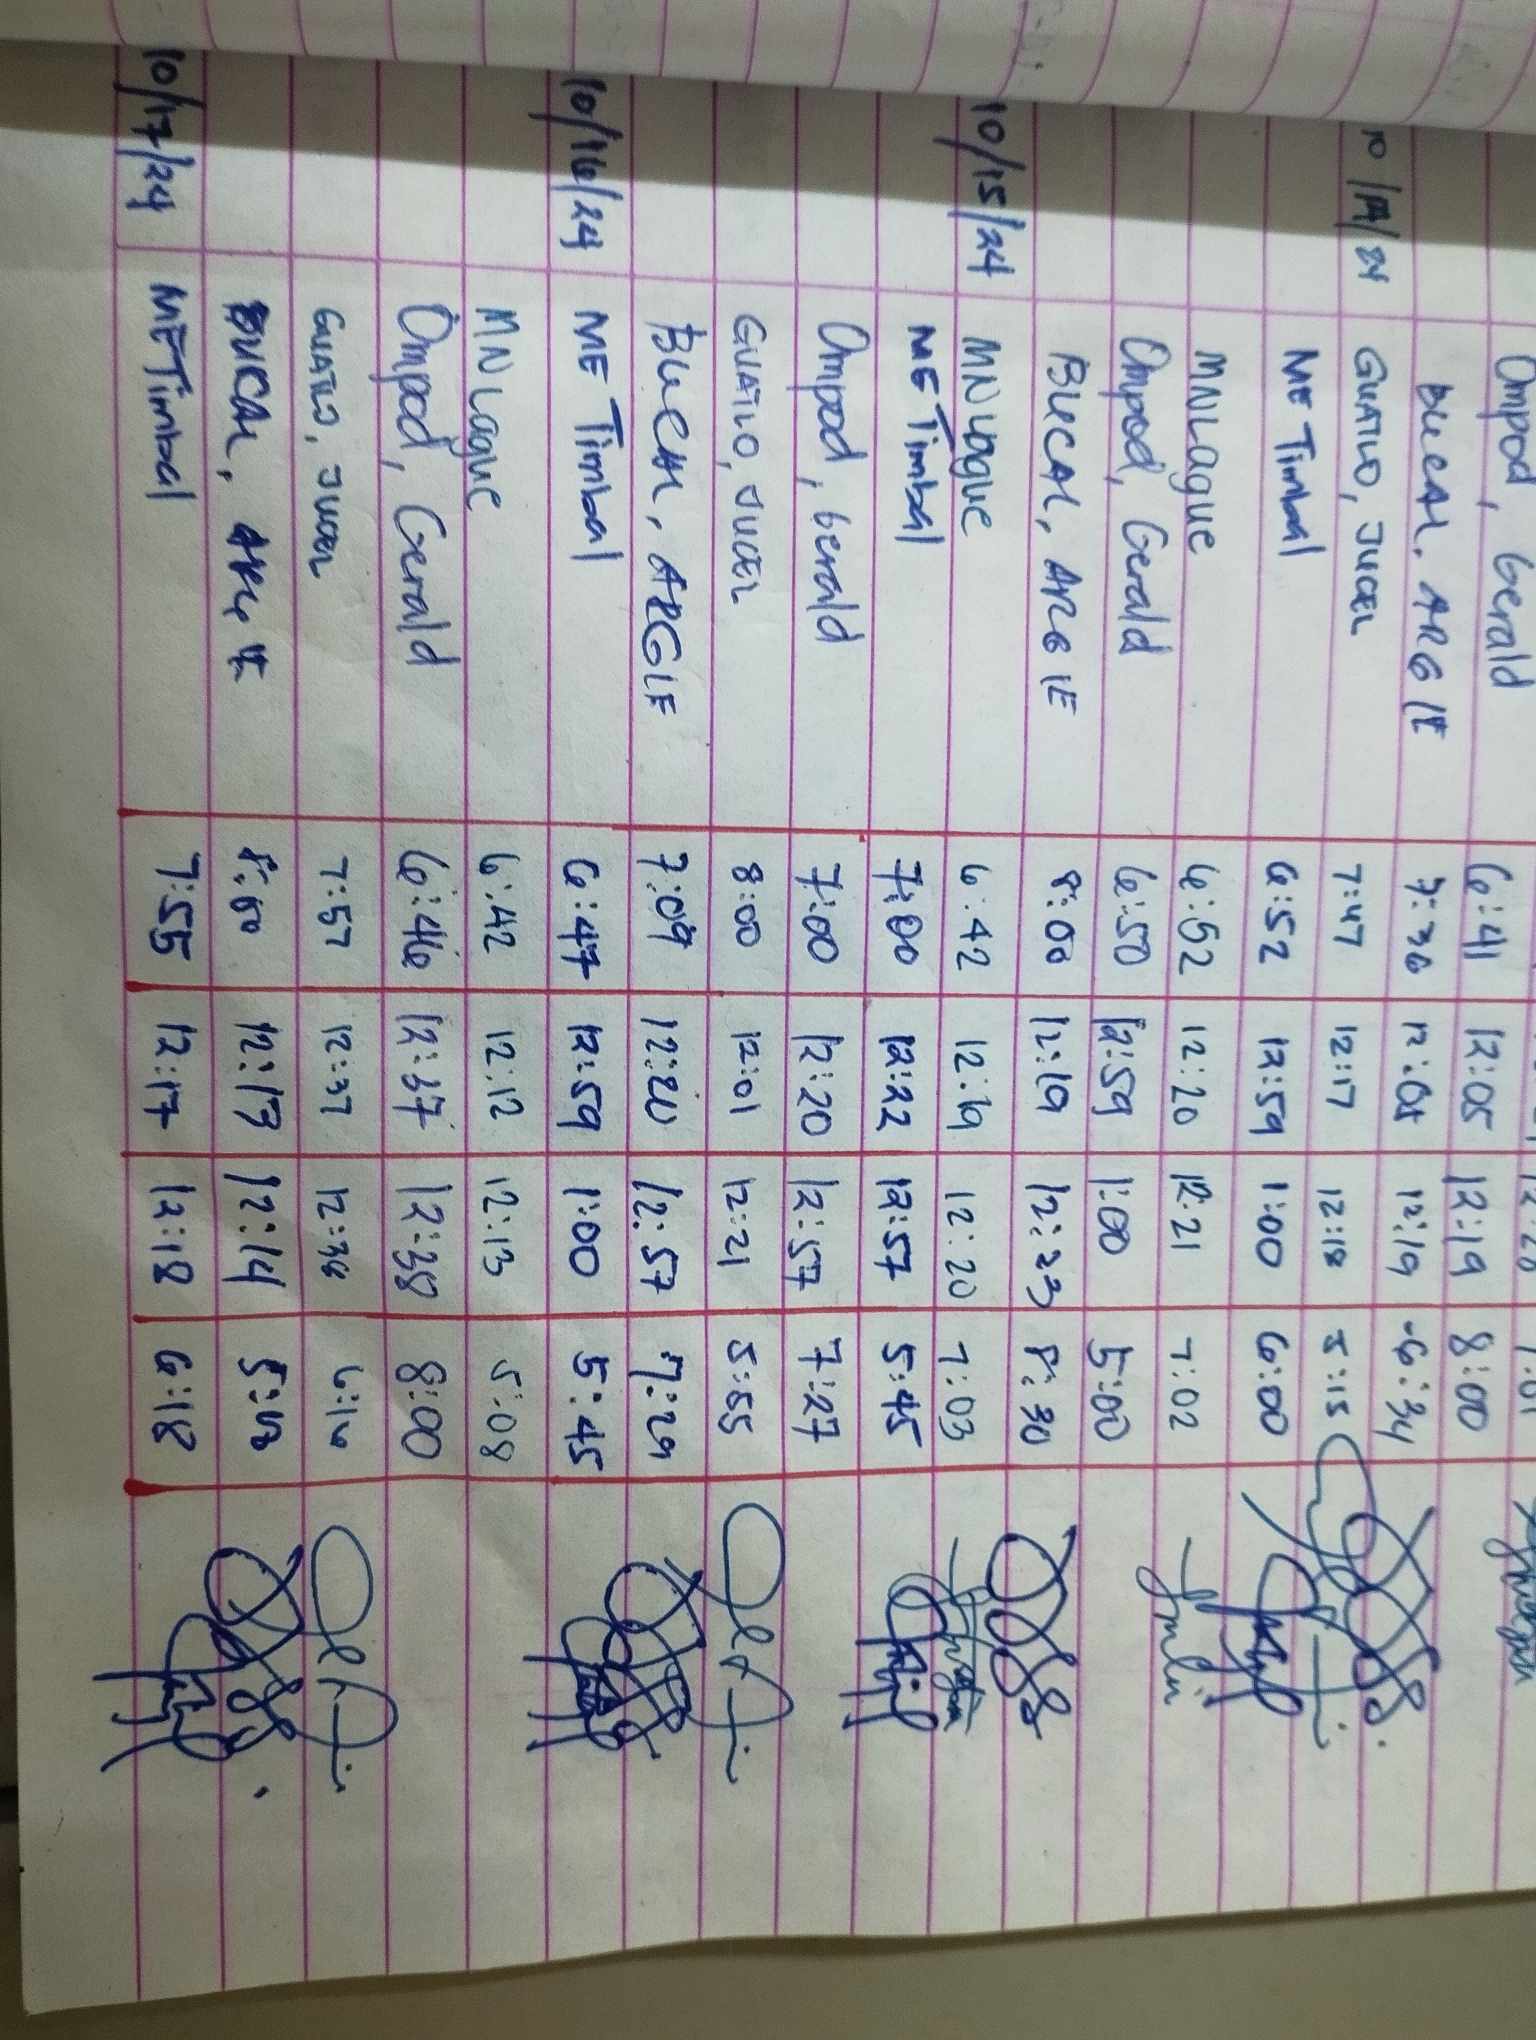 Ompod, Gerald 6:41 12:05 12:19 8:00
BUCAL, ARGIE 7:36 12:08 12:19 6:34
10/14/24 GUATLO, JUCEL 7:47 12:17 12:18 5:15
ME Timbal 6:52 12:59 1:00 6:00
MNLague 6:52 12:20 12:21 7:02
Ompod, Gerald 6:50 12:59 1:00 5:00
BUCAL, ARGIE 8:00 12:19 12:23 8:30
10/15/24 MNLague 6:42 12:19 12:20 7:03
ME Timbal 7:00 12:22 12:57 5:45
Ompod, Gerald 7:00 12:20 12:57 7:27
GUATLO, JUCEL 8:00 12:01 12:21 5:55
BUCAL, ARGIE 7:09 12:20 12:57 7:29
10/16/24 ME Timbal 6:47 12:59 1:00 5:45
MNLague 6:42 12:12 12:13 5:08
Ompod, Gerald 6:46 12:37 12:38 8:00
GUATLO, JUCEL 7:57 12:37 12:38 6:16
BUCAL, ARGIE 8:00 12:13 12:14
10/17/24 ME Timbal 7:55 12:17 12:18 6:18